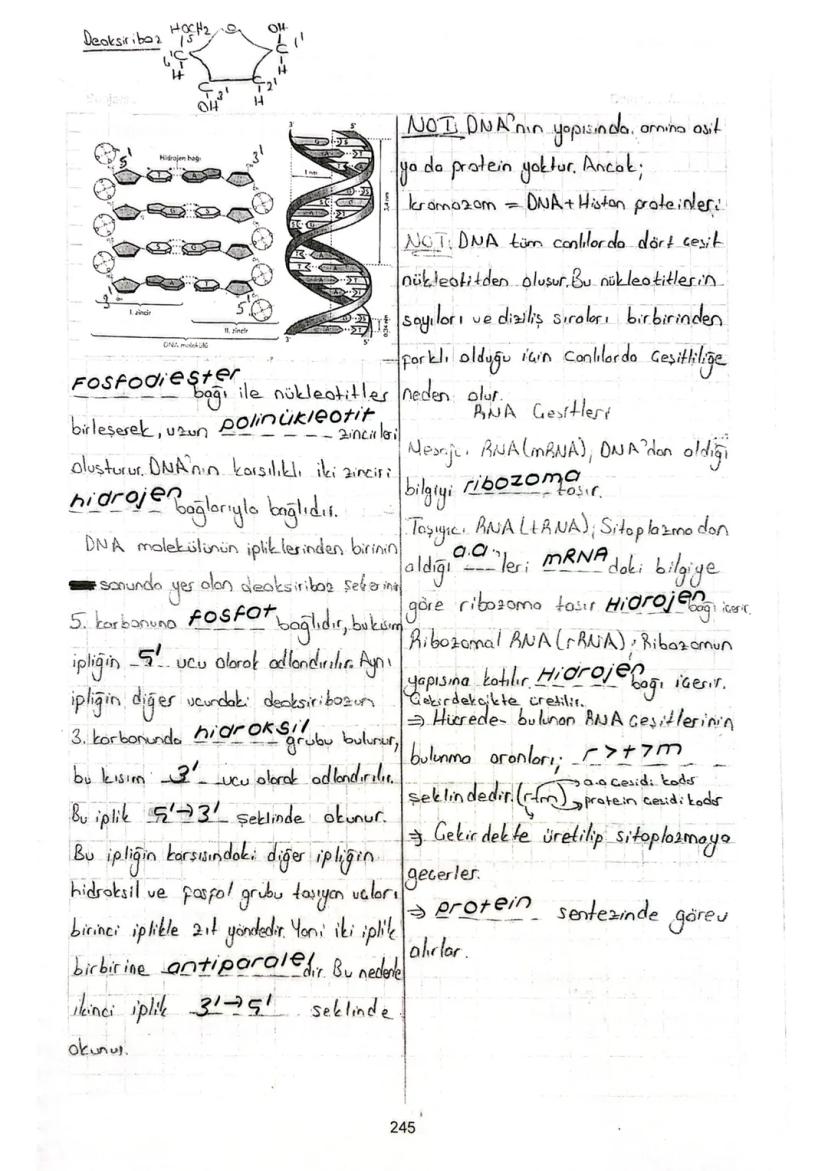 Deoksiriboz
HOCH2
5
O
OH
C 1'
4' C
H
H
C 3'
C 2'
OH
H
5'
Hidrojen bağı
3'
T A
G S
S G
A T
3'
5'
I. zincir
II. zincir
DNA molekülü
3' 5'
1 nm
3,4 nm
0,34 nm
3' 5'
Fosfodiester
bağı ile nükleotitler
birleşerek, uzun polinükleotit zincirleri
oluşturur. DNA'nın karşılıklı iki zinciri
hidrojen bağlarıyla bağlıdır.
DNA molekülünün ipliklerinden birinin
sonunda yer alan deoksiriboz şekerinin
5. karbonuna fosfat bağlıdır, bu kısım
ipliğin 5' ucu olarak adlandırılır. Aynı
ipliğin diğer ucundaki deoksibozun
3. karbonunda hidroksil grubu bulunur,
bu kısım 3' ucu olarak adlandırılır.
Bu iplik 5'→3' şeklinde okunur.
Bu ipliğin karşısındaki diğer ipliğin
hidroksil ve fosfat grubu taşıyan uçları
birinci iplikle zıt yöndedir. Yani iki iplik
birbirine antiparaleldir. Bu nedenle
ikinci iplik 3'→5' şeklinde
okunur.
NOT: DNA'nın yapısında, amino asit
ya da protein yoktur. Ancak;
kromozom = DNA + Histon proteinleri
NOT: DNA tüm canlılarda dört çeşit
nükleotitden oluşur. Bu nükleotitlerin
sayıları ve diziliş sıraları birbirinden
farklı olduğu için canlılarda çeşitliliğe
neden olur.
RNA Çeşitleri
Mesajcı RNA (mRNA); DNA'dan aldığı
bilgiyi ribozoma taşır.
Taşıyıcı RNA (tRNA); Sitoplazmadan
aldığı a.a. leri mRNA daki bilgiye
göre ribozoma taşır Hidrojen bağı içerir.
Ribozomal RNA (rRNA); Ribozomun
yapısına katılır. Hidrojen bağı içerir.
Çekirdekçikte üretilir.
⇒ Hücrede bulunan RNA çeşitlerinin
bulunma oranları; r>t>m
şeklindedir. (r-t-m) → a.a çeşidi kadar
→ protein çeşidi kadar
⇒ Çekirdekte üretilip sitoplazmaya
geçerler.
⇒ protein sentezinde görev
alırlar.
245